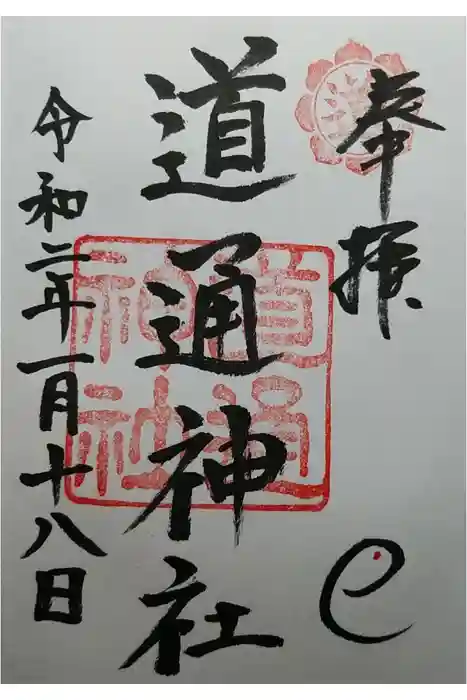 奉拝
道通神社
道通
神社
令和二年一月十八日